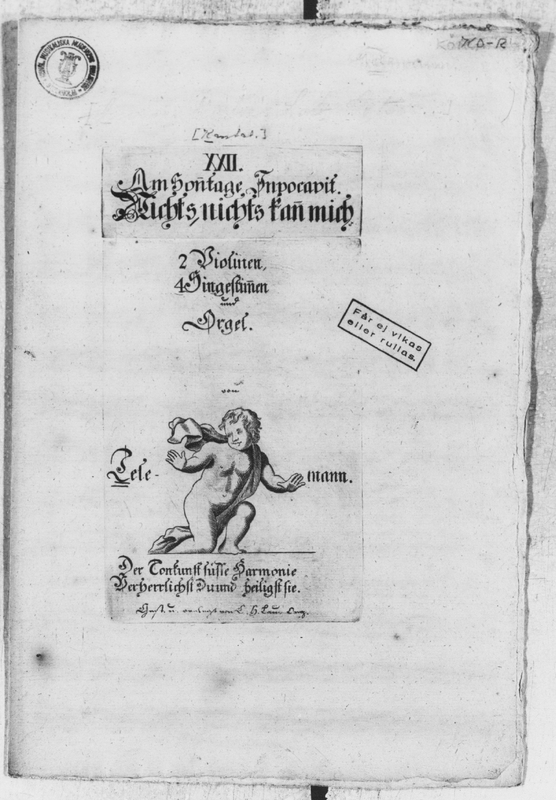 KO/KA-R
[Kantat.]
XXII.
Am Soñtage Invocavit.
Nichts, nichts kañ mich
2 Violinen,
4 Singestim̃en
und
Orgel.
Får ej vikas
eller rullas.
von
Tele- mann.
Der Tonkunst süsse Harmonie
Verherrlichst Du und heiligst sie.